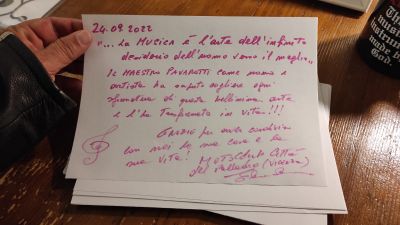 24.09.2022
"... La MUSICA è l'arte dell'infinito
desiderio dell'uomo verso il meglio„
Il MAESTRO PAVAROTTI come uomo e
artista ha saputo cogliere ogni
sfumatura di questa bellissima arte
e l'ha in vita!!!
GRAZIE per aver condiviso
con noi la sua casa e la
sua vita!
Città
del Palladio (VICENZA)
instrument
made by
God.